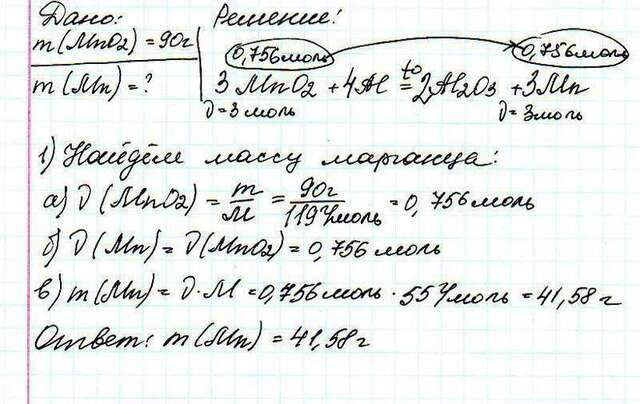 Дано:
m(MnO2) = 90г
m(Mn) = ?
Решение:
0,756моль
0,756моль
3MnO2 + 4Al =t° 2Al2O3 + 3Mn
ν=3моль
ν=3моль
1) Найдём массу марганца:
а) ν(MnO2) = m/M = 90г/119г/моль = 0,756моль
б) ν(Mn) = ν(MnO2) = 0,756 моль
в) m(Mn) = ν·M = 0,756моль · 55г/моль = 41,58 г
Ответ: m(Mn) = 41,58г